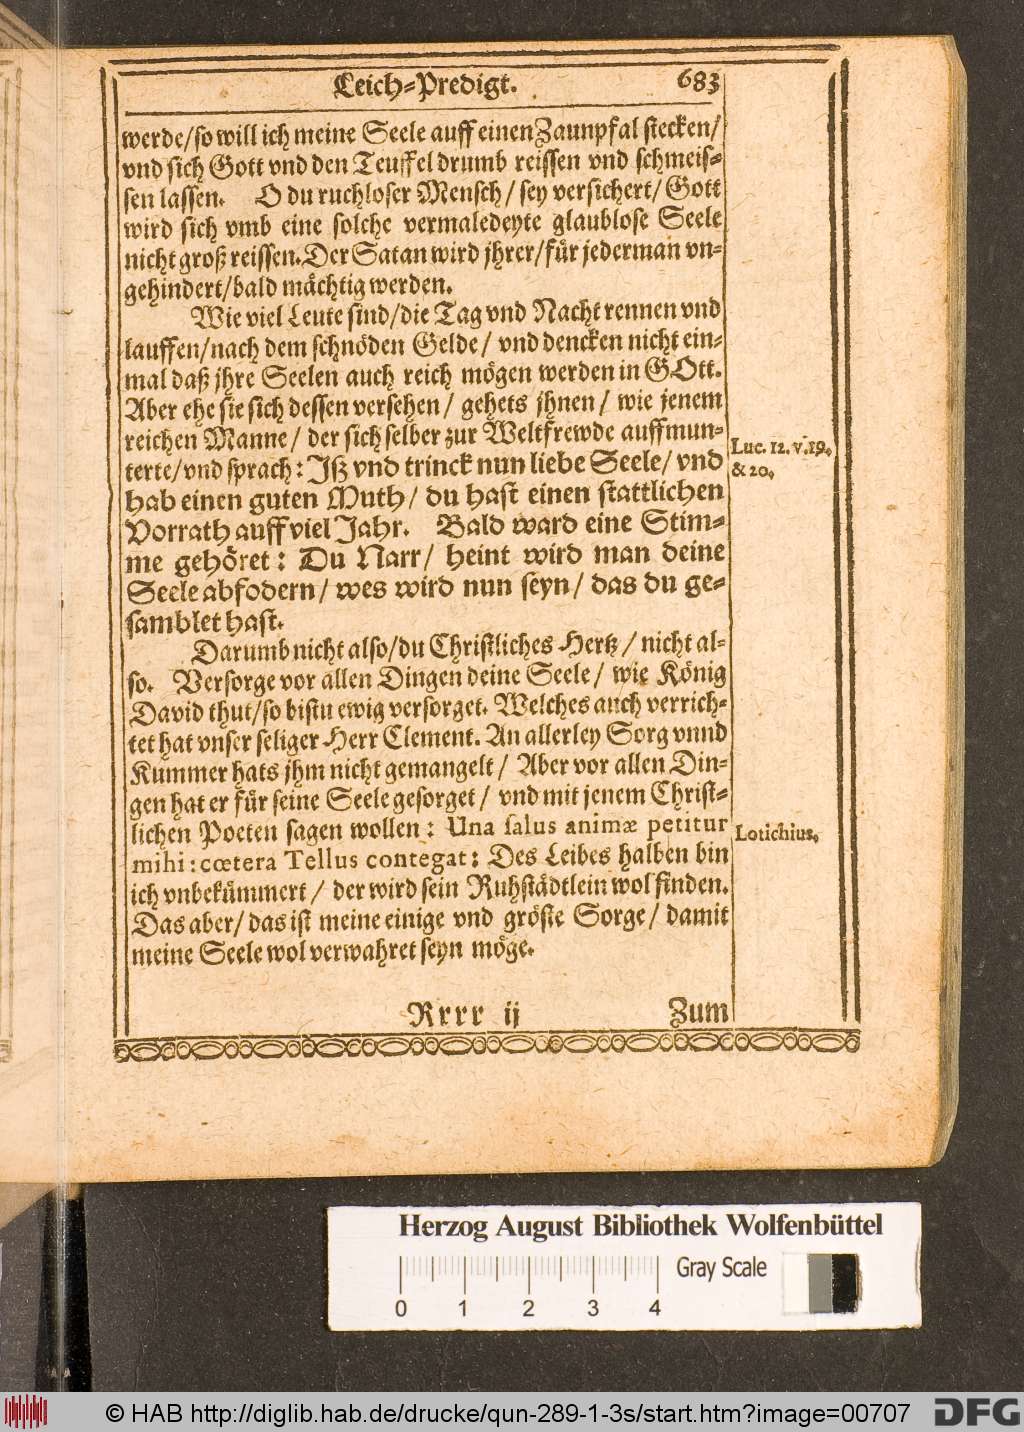 Leich-Predigt. 683
werde/so will ich meine Seele auff einen Zaunpfal stecken/
vnd sich Gott vnd den Teuffel drumb reissen vnd schmeis-
sen lassen. O du ruchloser Mensch/ sey versichert/ Gott
wird sich vmb eine solche vermaledeyte glaublose Seele
nicht groß reissen. Der Satan wird jhrer/für jederman vn-
gehindert/bald mächtig werden.
Wie viel Leute sind/die Tag vnd Nacht rennen vnd
lauffen/nach dem schnöden Gelde/ vnd dencken nicht ein-
mal daß jhre Seelen auch reich mögen werden in GOtt.
Aber ehe sie sich dessen versehen/ gehets jhnen/ wie jenem
reichen Manne/ der sich selber zur Weltfrewde auffmun-
terte/vnd sprach: Iß vnd trinck nun liebe Seele/ vnd
hab einen guten Muth/ du hast einen stattlichen
Vorrath auff viel Jahr. Bald ward eine Stim-
me gehöret: Du Narr/ heint wird man deine
Seele abfodern/ wes wird nun seyn/ das du ge-
samblet hast.
Luc. 12. v. 19.
& 20.
Darumb nicht also/du Christliches Hertz/ nicht al-
so. Versorge vor allen Dingen deine Seele/ wie König
David thut/so bistu ewig versorget. Welches auch verrich-
tet hat vnser seliger Herr Clement. An allerley Sorg vnnd
Kummer hats jhm nicht gemangelt/ Aber vor allen Din-
gen hat er für seine Seele gesorget/ vnd mit jenem Christ-
lichen Poeten sagen wollen: Una salus animæ petitur
mihi: cœtera Tellus contegat: Des Leibes halben bin
ich vnbekümmert/ der wird sein Ruhstädtlein wol finden.
Das aber/ das ist meine einige vnd gröste Sorge/ damit
meine Seele wol verwahret seyn möge.
Lotichius.
Rrrr ij Zum
Herzog August Bibliothek Wolfenbüttel
Gray Scale
0 1 2 3 4
© HAB http://diglib.hab.de/drucke/qun-289-1-3s/start.htm?image=00707 DFG